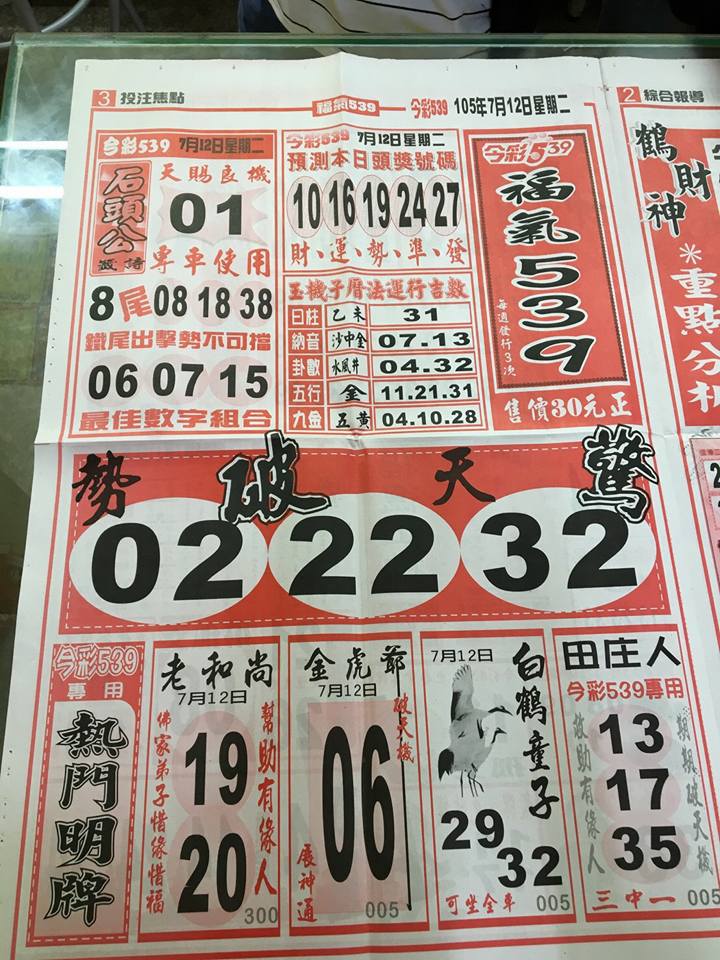 3 投注焦點
福氣539
今彩539 105年7月12日星期二
2 綜合報導
今彩539 7月12日星期二
石頭公
天賜良機
01
專車使用
8尾 08 18 38
鐵尾出擊勢不可擋
06 07 15
最佳數字組合
今彩539 7月12日星期二
預測本日頭獎號碼
10 16 19 24 27
財、運、勢、準、發
玉機子曆法運行吉數
日柱 乙未 31
納音 沙中金 07.13
卦數 水風井 04.32
五行 金 11.21.31
九金 五黃 04.10.28
今彩539
福氣539
每週發行3次
售價30元正
鶴財神
*重點分析
勢破天驚
02 22 32
今彩539
專用
熱門明牌
老和尚
7月12日
幫助有緣人
19
20
佛家弟子惜緣惜福
300
金虎爺
7月12日
破天機
06
展神通
005
7月12日
白鶴童子
29
32
可坐全車
005
田庄人
今彩539專用
期期破天機
13
17
35
救助有緣人
三中一
005